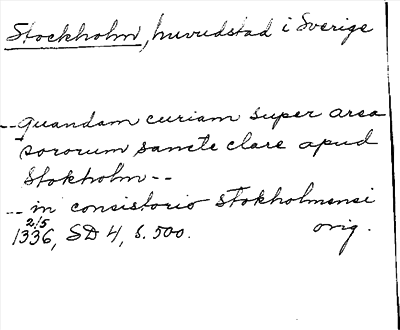 Stockholm, huvudstad i Sverige
-- quandam curiam super area
sororum sancte clare apud
Stokholm --
-- in consistorio stokholmensi
1336 2/5, SD 4, s. 500. orig.